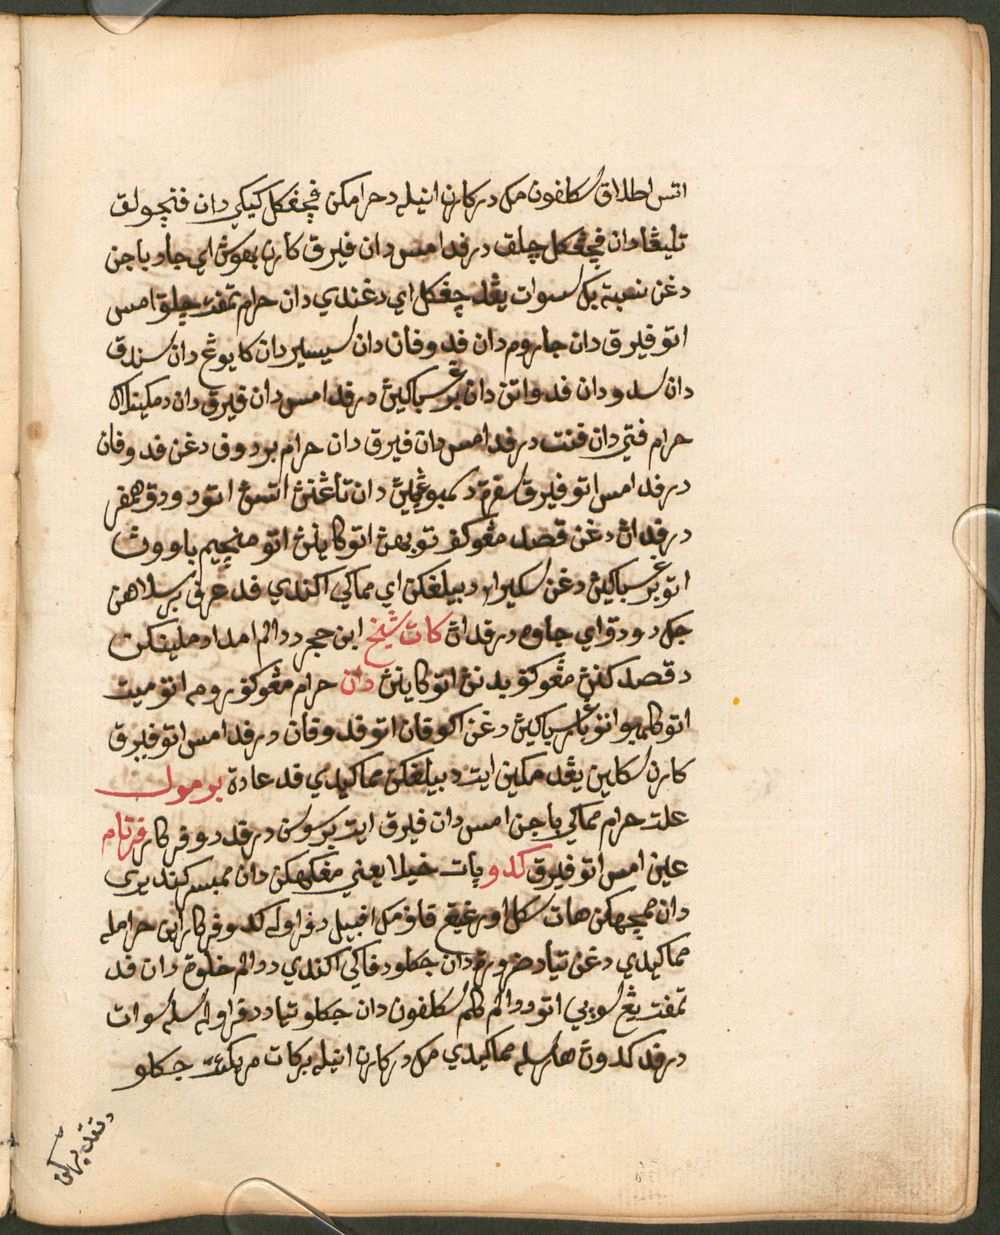 اتس اطلاق سکلفون مک درکارن انيله دحرامکن فچڠکل کيکي دان فنچولق
تليڠا دان فچڠکل چلق درفد امس دان فيرق کارن بهوسڽ اي جادو باجن
دغن نسبة بکي سوات يڠد چڠکل اي دغندي دان حرام تمفت چلق امس
اتو فيرق دان جاروم دان فدوفان دان سيسير دان کايوڠ دان سندق
دان سدو دان فدواتن دان برڠ سباکيڽ درفد امس دان فيرق دان دمکينله
حرام فتي دان قنت درفد امس دان فيرق دان حرام بردوف دغن فدوفان
درفد امس اتو فيرق سقرة دکمبوڠيڽ دان تاڠنڽ اتسڽ اتو دودق همفر
درفداڽ دغن قصد مڠوکف توبهڽ اتو کاينڽ اتو منچيم باووڽ
اتو برڠ سباکيڽ دغن سکيرا٢ دبيلڠکن اي مماکي اکندي فد عرف برسلاهن
جک دودق اي جاوه درفداڽ کات شيخ ابن حجر ددالم امداد ملينکن
دقصدکنڽ مڠوکف بدنڽ اتو کاينڽ دان حرام مڠوکف رومه اتو ميت
اتو کلمبو اتو برڠ سباکيڽ دغن اکوفان اتو فدوفان درفد امس اتو فيرق
کارن سکلين يڠد مکين ايت دبيلڠکن مماکيدي فد عادة برمول
علت حرام مماکي باجن امس دان فيرق ايت برسوسن درفد دوفرکار فرتام
عين امس اتو فيرق کدو يات خيلا يعني مڠکهکن دان ممبسرکندير
دان ممچهکن هات سکل اورڠ فقير مک افبيل دفراوله کدوفرکار اين حرامله
مماکيدي دغن تياد ضرورة دان جکلو دفاکي اکندي ددالم خلوة دان فد
تمفت يڠ سوپي اتو دالم کلم سکلفون دان جکلو تياد دفراوله سله سوات
درفد کدون هارسله مماکيدي مک درکارن انيله برکات مريکئت جکلو